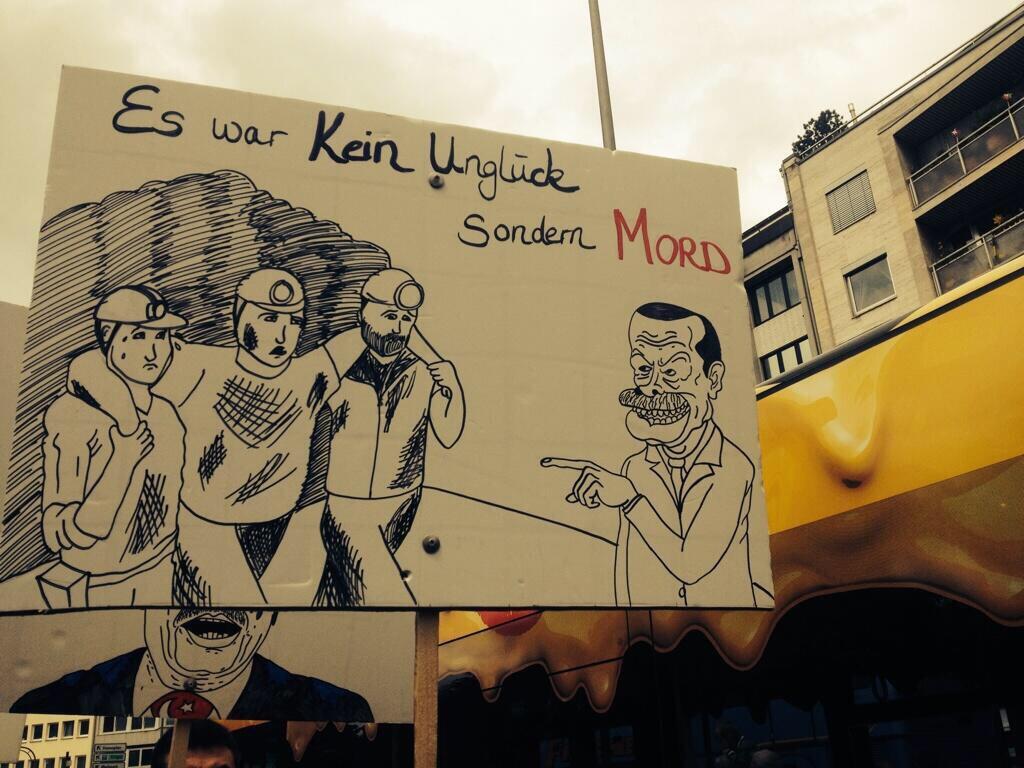 Es war Kein Unglück
Sondern MORD